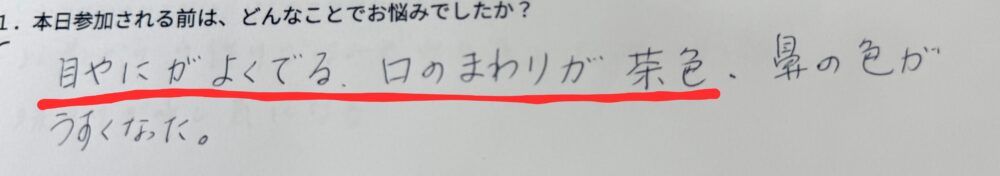 1. 本日参加される前は、どんなことでお悩みでしたか？
目やにがよくでる、口のまわりが茶色、鼻の色が
うすくなった。